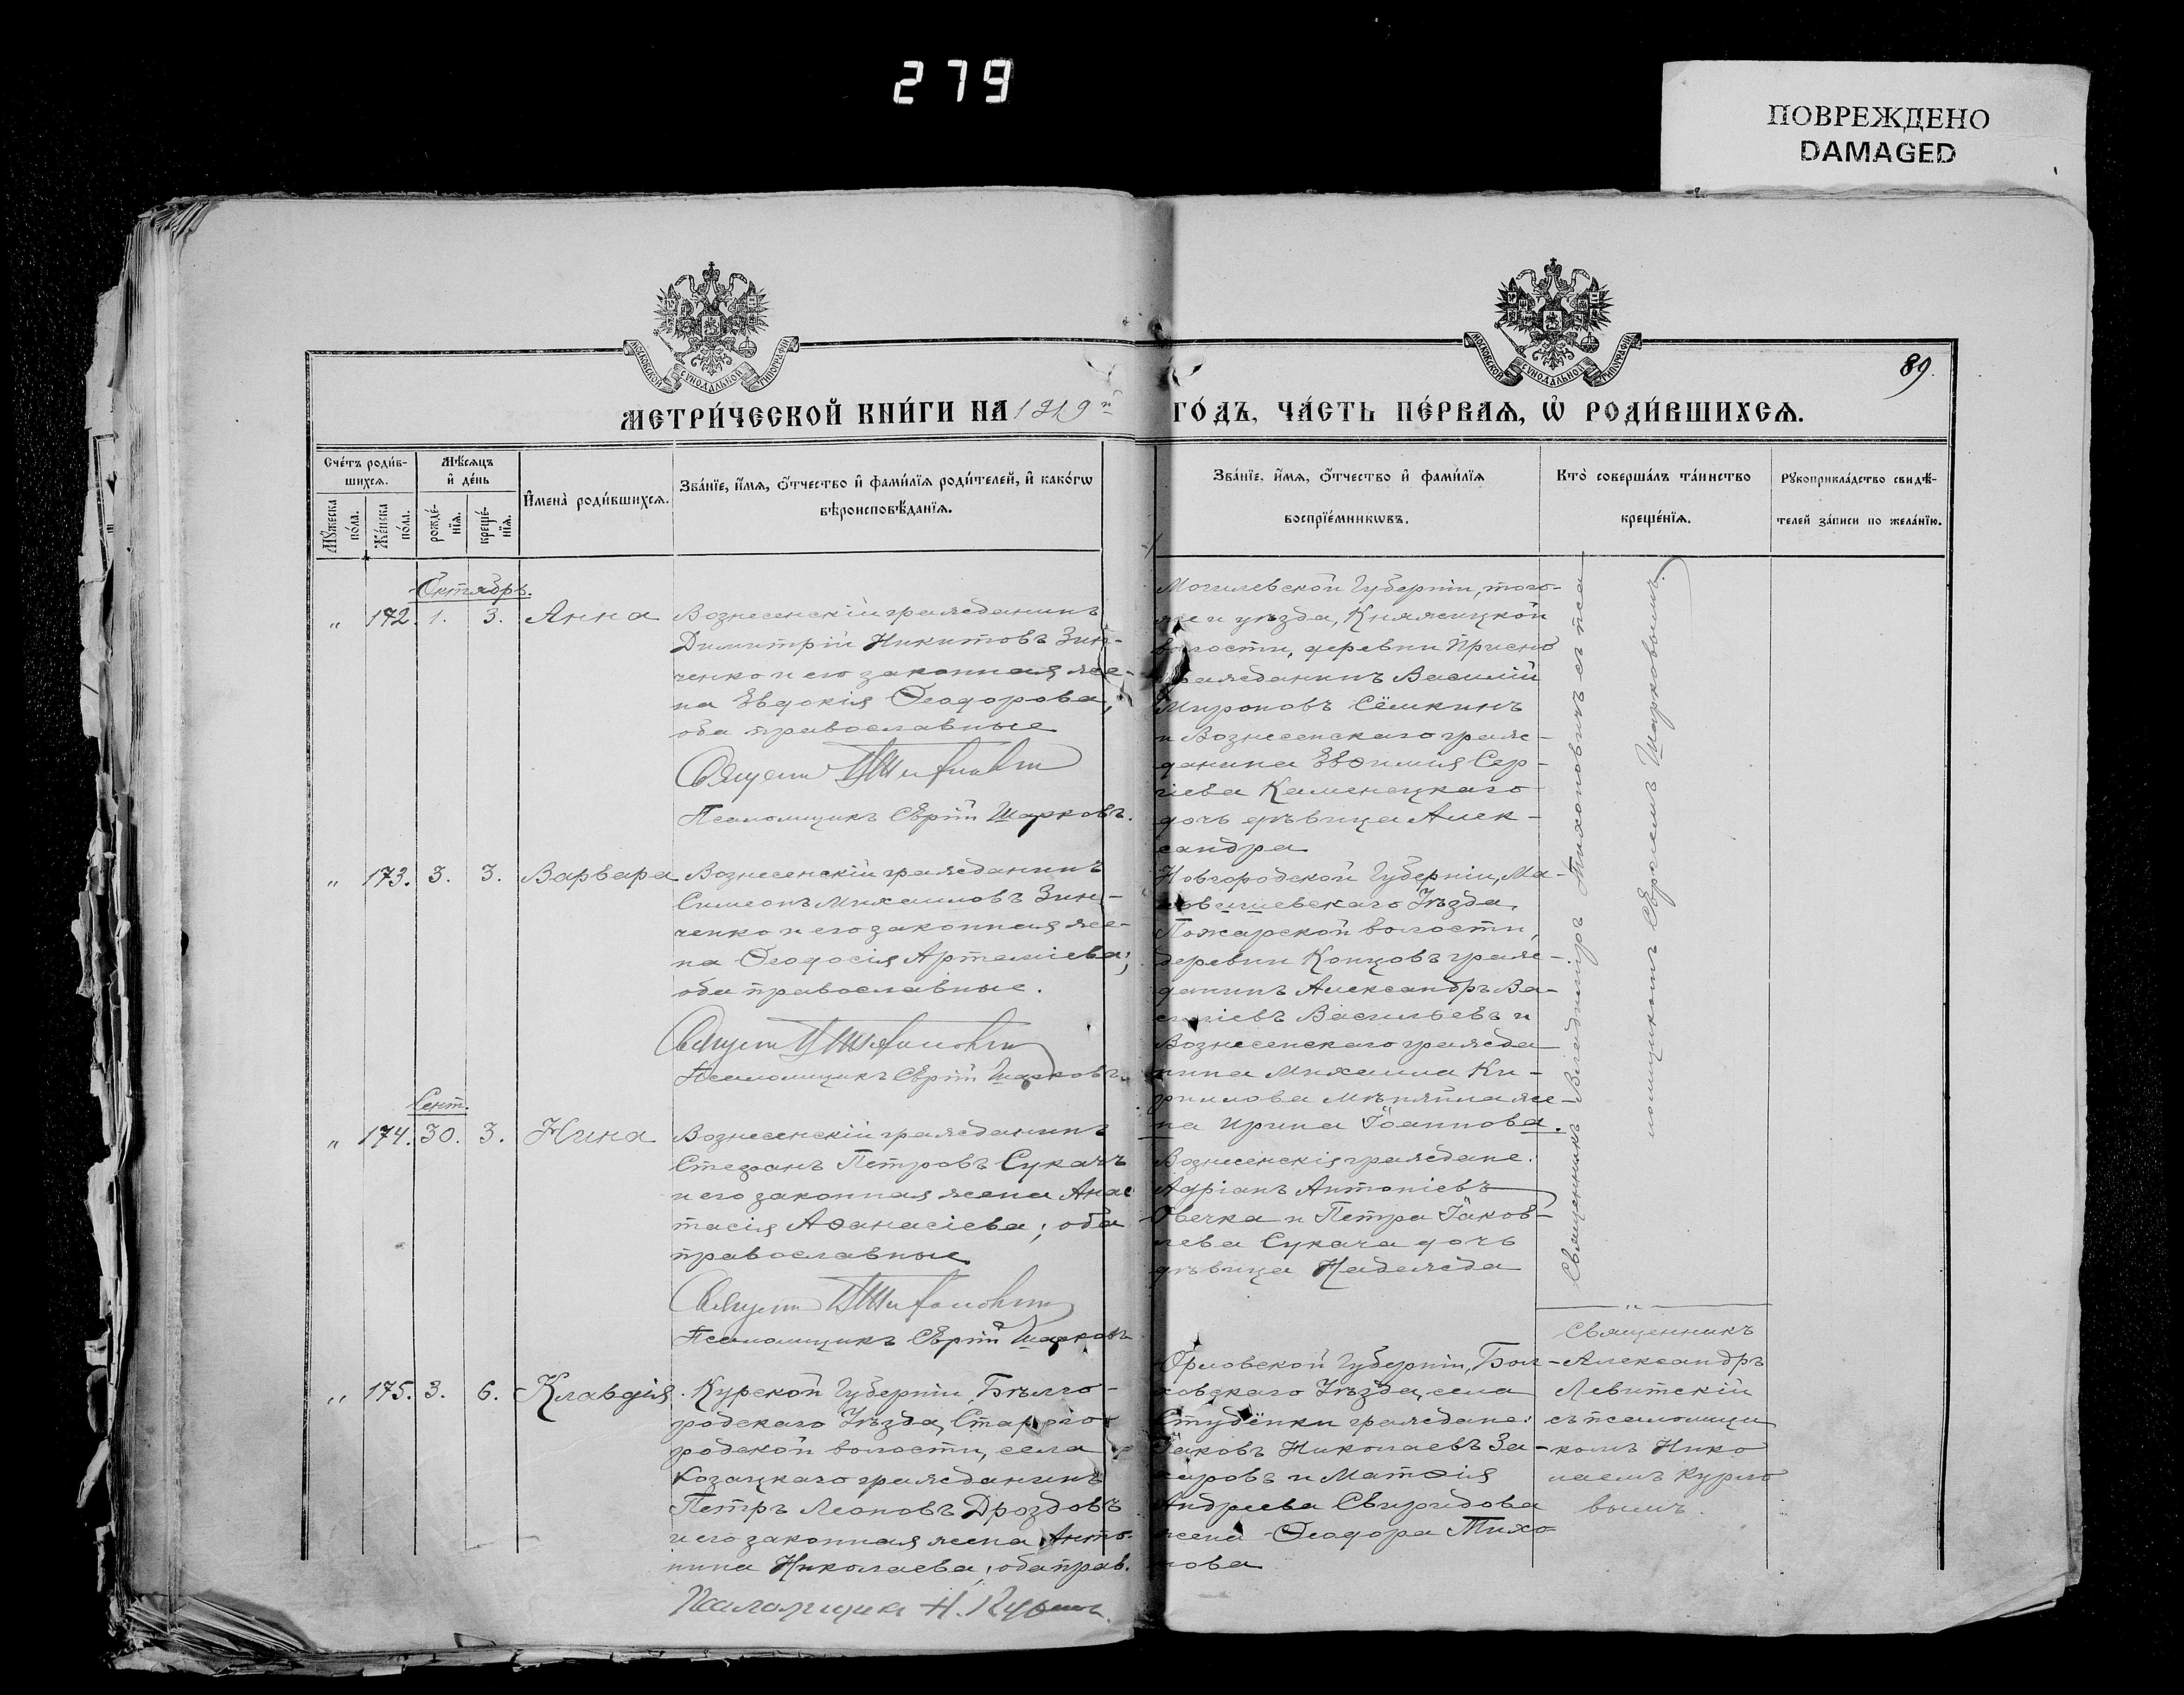 279
ПОВРЕЖДЕНО
DAMAGED
МОСКОВСКОЙ СѴНОДАЛЬНОЙ ТИПОГРАФІИ
МОСКОВСКОЙ СѴНОДАЛЬНОЙ ТИПОГРАФІИ
89.
МЕТРИ́ЧЕСКОЙ КНИ́ГИ НА 1919й ГО́ДЪ, ЧА́СТЬ ПЕ́РВАѦ, Ѡ҆ РОДИ́ВШИХСѦ.
Сче́тъ роди́в-
шихсѧ.
Мꙋ́жеска по́ла.
Же́нска по́ла.
Мѣ́сѧцъ
и҆ де́нь
рожде́-
нїѧ.
креще́-
нїѧ.
И҆мена̀ роди́вшихсѧ.
Зва́нїе, и҆́мѧ, ѻ҆́тчество и҆ фами́лїѧ роди́телей, и҆ како́гѡ
вѣроисповѣ́данїѧ.
Зва́нїе, и҆́мѧ, ѻ҆́тчество и҆ фами́лїѧ
воспрїе́мникѡвъ.
Кто̀ соверша́лъ та́инство
креще́нїѧ.
Рꙋкоприкла́дство свидѣ́-
телей за́писи по жела́нїю.
Октябрь.
" 172. 1. 3. Анна
Вознесенскій гражданинъ
Димитрій Никитовъ Зин-
ченко и его законная же-
на Евдокія Ѳеодорова,
оба православные
Псаломщикъ Сергій Шарковъ.
Могилевской Губерніи, того-
же и уѣзда, Княжицкой
волости, деревни Присно
гражданинъ Василій
Мироновъ Сёмкинъ
и Вознесенскаго граж-
данина Евѳимія Сер-
гіева Каменецкаго
дочь дѣвица Алек-
сандра
" 173. 3. 3. Варвара
Вознесенскій гражданинъ
Симеонъ Михаиловъ Зин-
ченко и его законная же-
на Ѳеодосія Артеміева;
оба православные.
Псаломщикъ Сергій Шарковъ.
Новгородской Губерніи, Ма-
ловишевскаго Уѣзда,
Пожарской волости,
деревни Концовъ граж-
данинъ Александръ Ва-
силіевъ Васильевъ и
Вознесенскаго гражда
нина Михаила Ки-
риллова же-
на Ирина Іоаннова.
Сент.
" 174. 30. 3. Нина
Вознесенскій гражданинъ
Стефанъ Петровъ Сукачъ
и его законная жена Анас
тасія Аѳанасіева; оба
православные
Псаломщикъ Сергій Шарковъ
Вознесенскія граждане:
Адріанъ Антоніевъ
Овечка и Петра Іаков-
лева Сукача дочь
дѣвица Надежда
Священникъ Владимиръ Тихоновичъ съ пса
ломщикомъ Сергіемъ Шарковымъ.
" 175. 3. 6. Клавдія
Курской Губерніи, Бѣлго-
родскаго Уѣзда, Старого-
родской волости, села
Козацкаго гражданинъ
Петръ Леоновъ Дроздовъ
и его законная жена Анто-
нина Николаева; оба прав.
Псаломщикъ Н.
Орловской Губерніи, Бол-
ховскаго Уѣзда, села
Студёнки граждане:
Іаковъ Николаевъ За-
харовъ и Матѳія
Андреева Свиридова
жена Ѳеодора Тихо-
нова
Священникъ
Александръ
Левитскій
съ псаломщи
комъ Нико
лаемъ